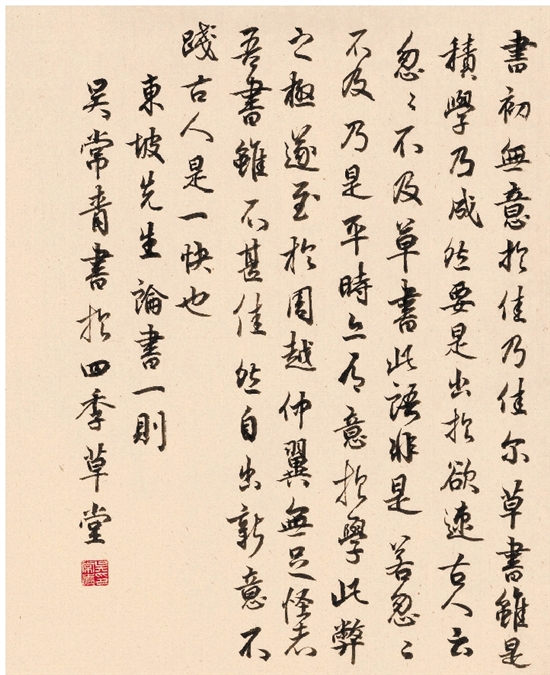 書初無意於佳乃佳尔草書雖是
積學乃成然要是出於欲速古人云
忽〻不及草書此語非是若忽〻
不及乃是平時亦有意於學此弊
之極遂至於周越仲翼無足怪者
吾書雖不甚佳然自出新意不
踐古人是一快也
東坡先生論書一則
吴常青書於四季草堂